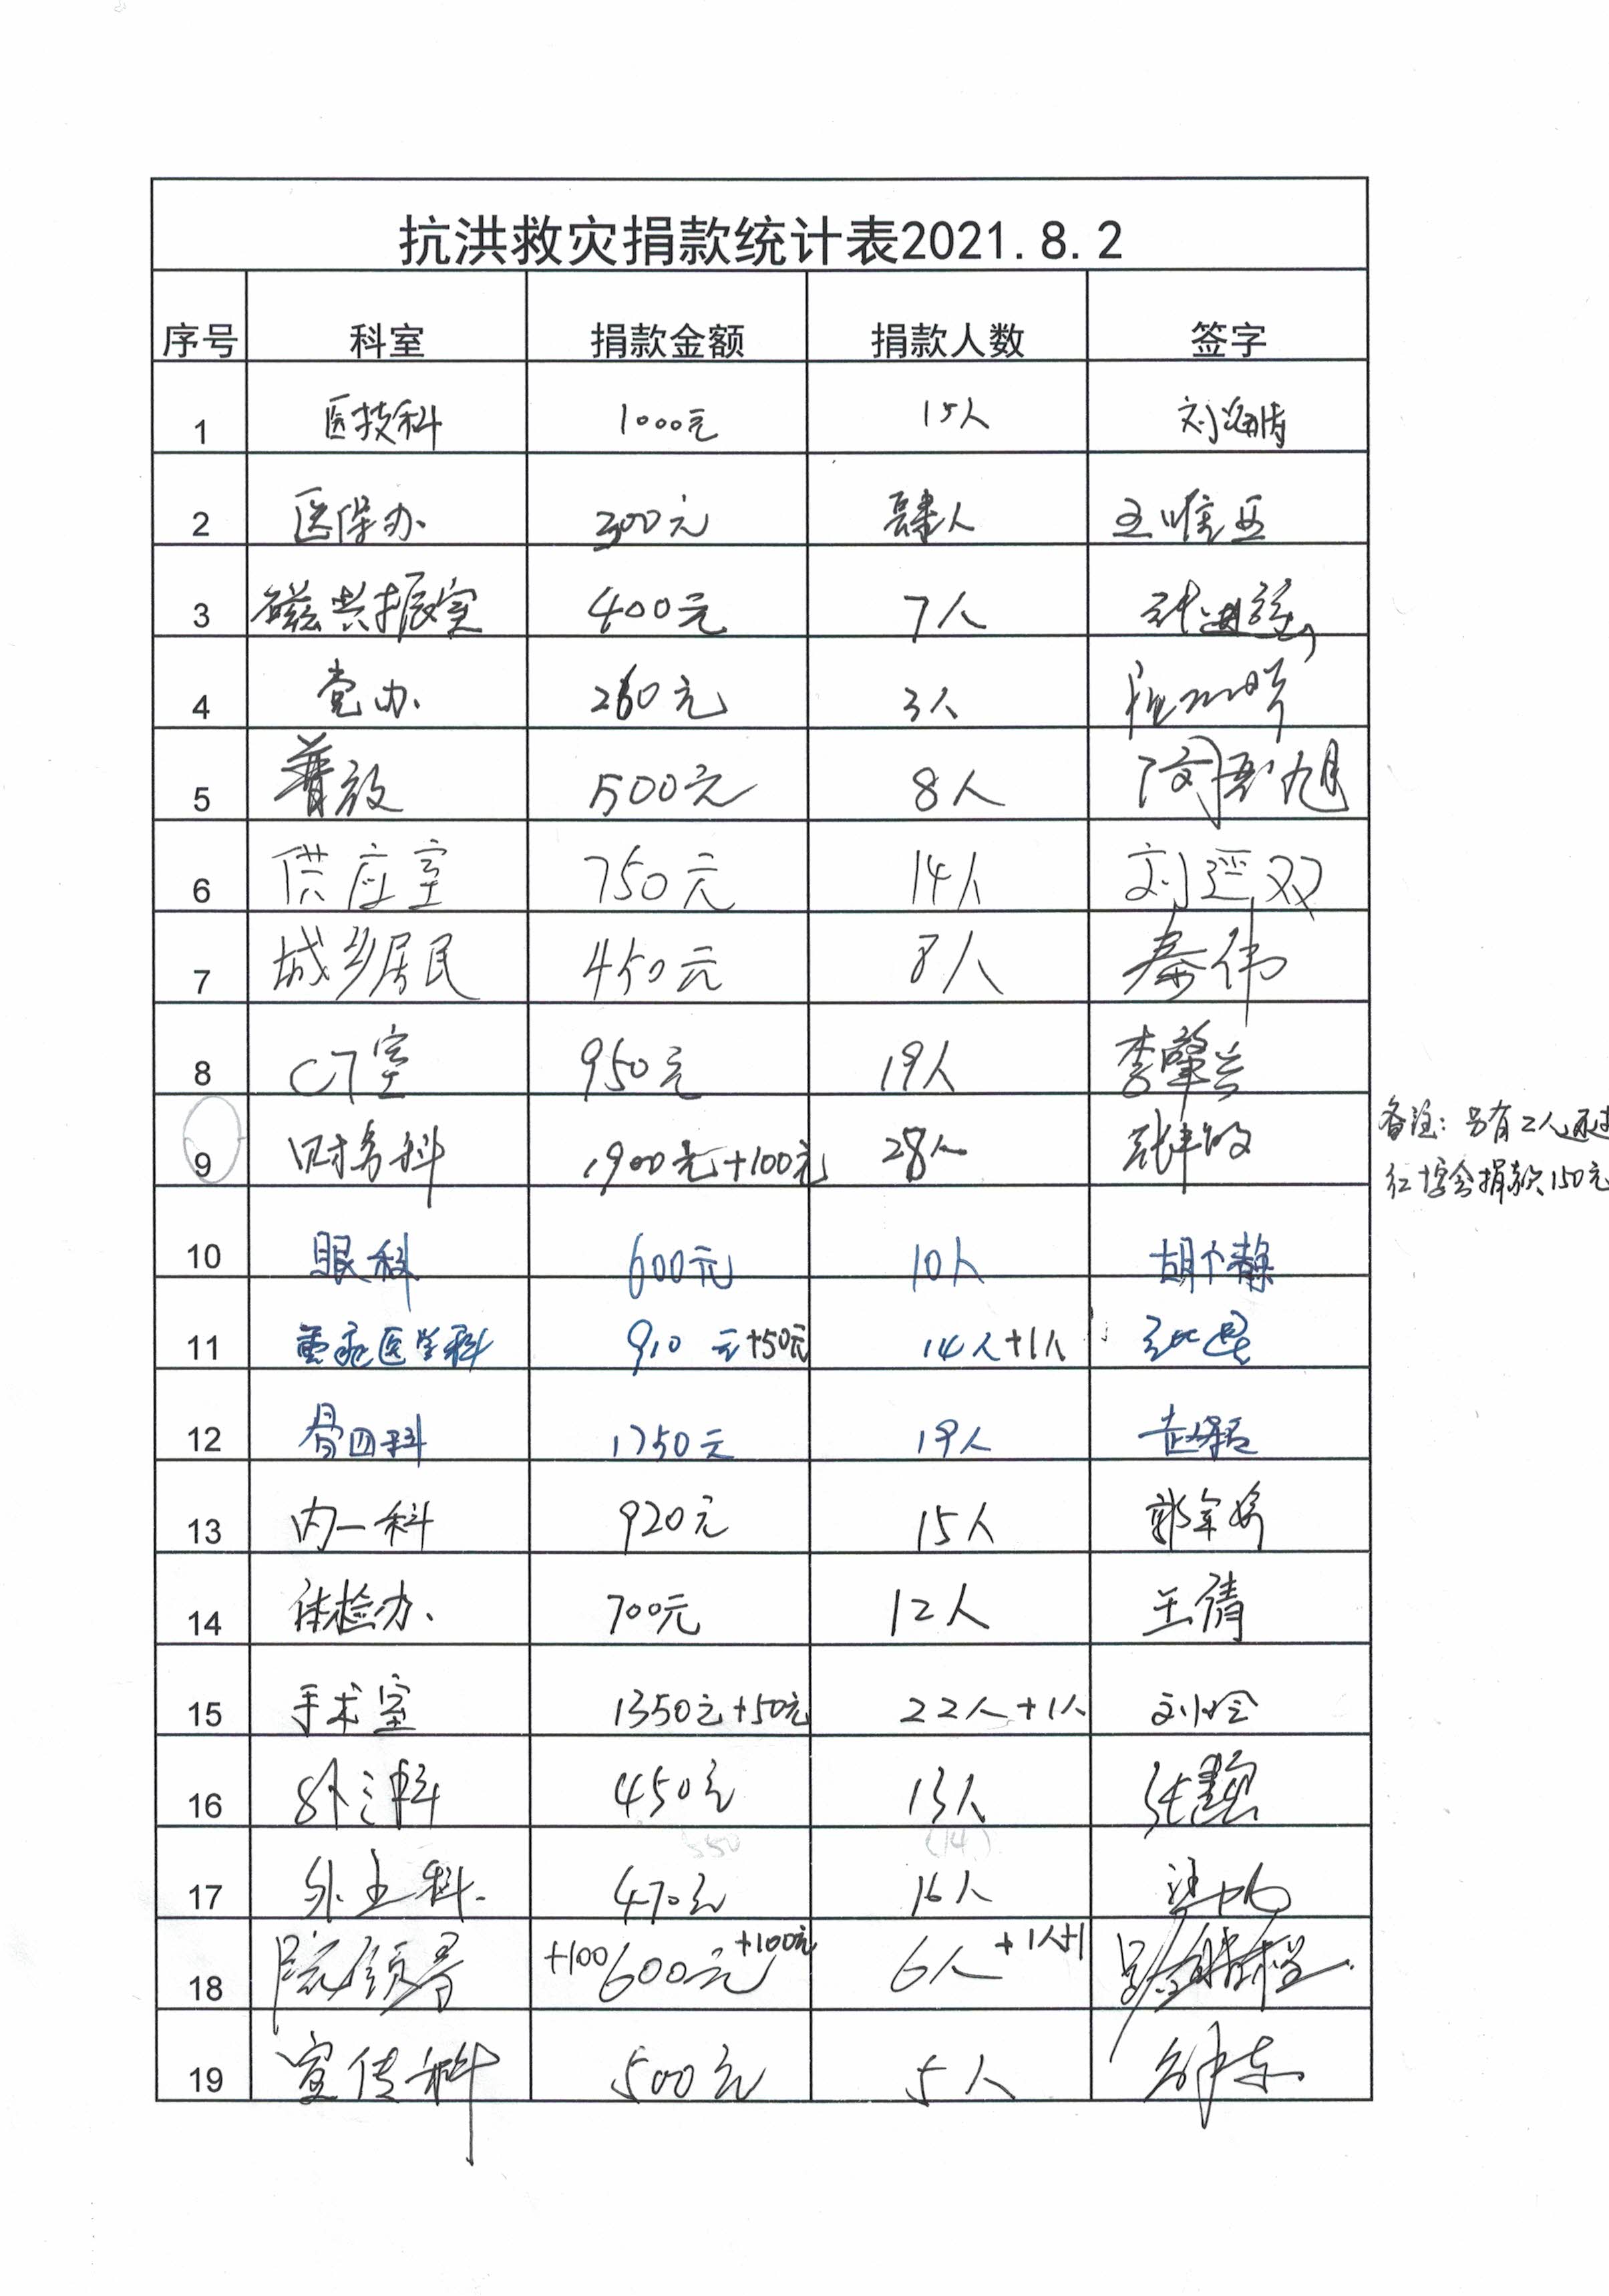 抗洪救灾捐款统计表2021.8.2
序号 科室 捐款金额 捐款人数 签字
1 医技科 1000元 15人 刘海倩
2 医保办 300元 肆人 王唯亚
3 磁共振室 400元 7人
4 党办 260元 3人
5 普放 500元 8人
6 供应室 750元 14人 刘逐双
7 城乡居民 450元 8人 秦伟
8 CT室 950元 19人 李肇兰
9 财务科 1900元+100元 28人
备注：另有2人通过
红十字会捐款150元
10 眼科 600元 10人
11 重症医学科 910元+50元 14人+1人
12 骨四科 1250元 19人
13 内一科 920元 15人
14 体检办 700元 12人 王倩
15 手术室 1350元+50元 22人+1人 刘玲
16 外三科 450元 13人 张慧
550 (14)
17 外五科 470元 16人
18 院领导 +100 600元 +100元 6人 +1人+1
19 宣传科 500元 5人